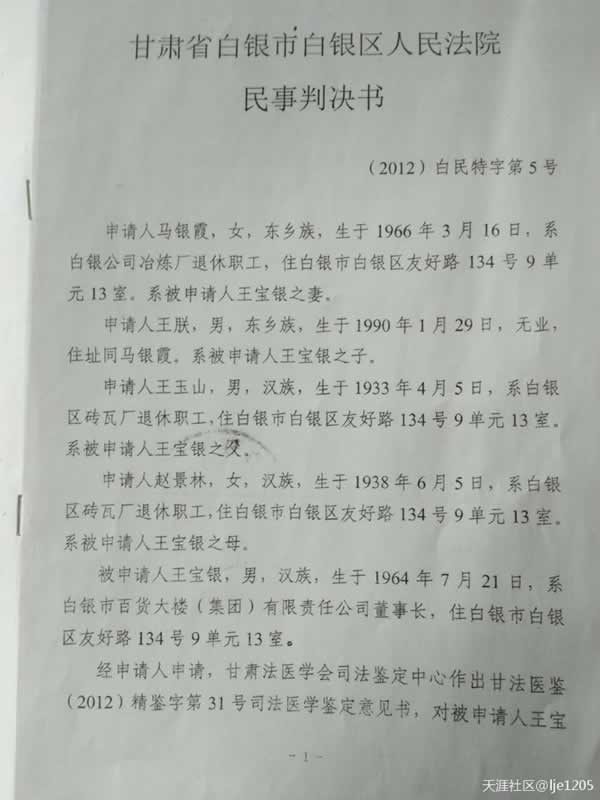 甘肃省白银市白银区人民法院
民事判决书
（2012）白民特字第5号
申请人马银霞，女，东乡族，生于1966年3月16日，系
白银公司冶炼厂退休职工，住白银市白银区友好路134号9单
元13室。系被申请人王宝银之妻。
申请人王朕，男，东乡族，生于1990年1月29日，无业，
住址同马银霞。系被申请人王宝银之子。
申请人王玉山，男，汉族，生于1933年4月5日，系白银
区砖瓦厂退休职工，住白银市白银区友好路134号9单元13室。
系被申请人王宝银之父。
申请人赵景林，女，汉族，生于1938年6月5日，系白银
区砖瓦厂退休职工，住白银市白银区友好路134号9单元13室。
系被申请人王宝银之母。
被申请人王宝银，男，汉族，生于1964年7月21日，系
白银市百货大楼（集团）有限责任公司董事长，住白银市白银
区友好路134号9单元13室。
经申请人申请，甘肃法医学会司法鉴定中心作出甘法医鉴
（2012）精鉴字第31号司法医学鉴定意见书，对被申请人王宝
- 1 -
天涯社区@lje1205